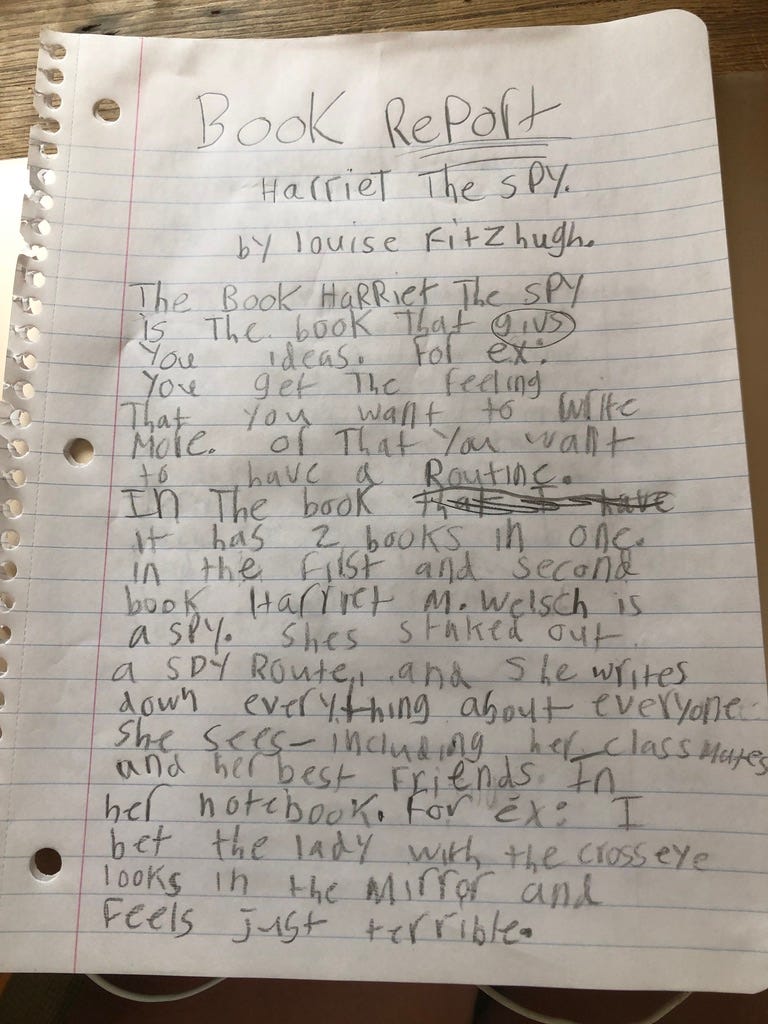 Book Report
Harriet The sPY.
by louise Fitzhugh.
The Book HaRRiet The sPY
is The book That givs
You ideas. For ex:
You get The feeling
That you want to write
More. or That You want
to have a Routine.
In The book that I have
it has 2 books in one.
in the first and second
book Harriet M. Welsch is
a sPy. shes staked out
a sPy Route, and she writes
down everything about everyone
she sees-including her classmates
and her best Friends In
her notebook. For ex: I
bet the lady with the cross eye
looks in the mirror and
Feels just terrible.